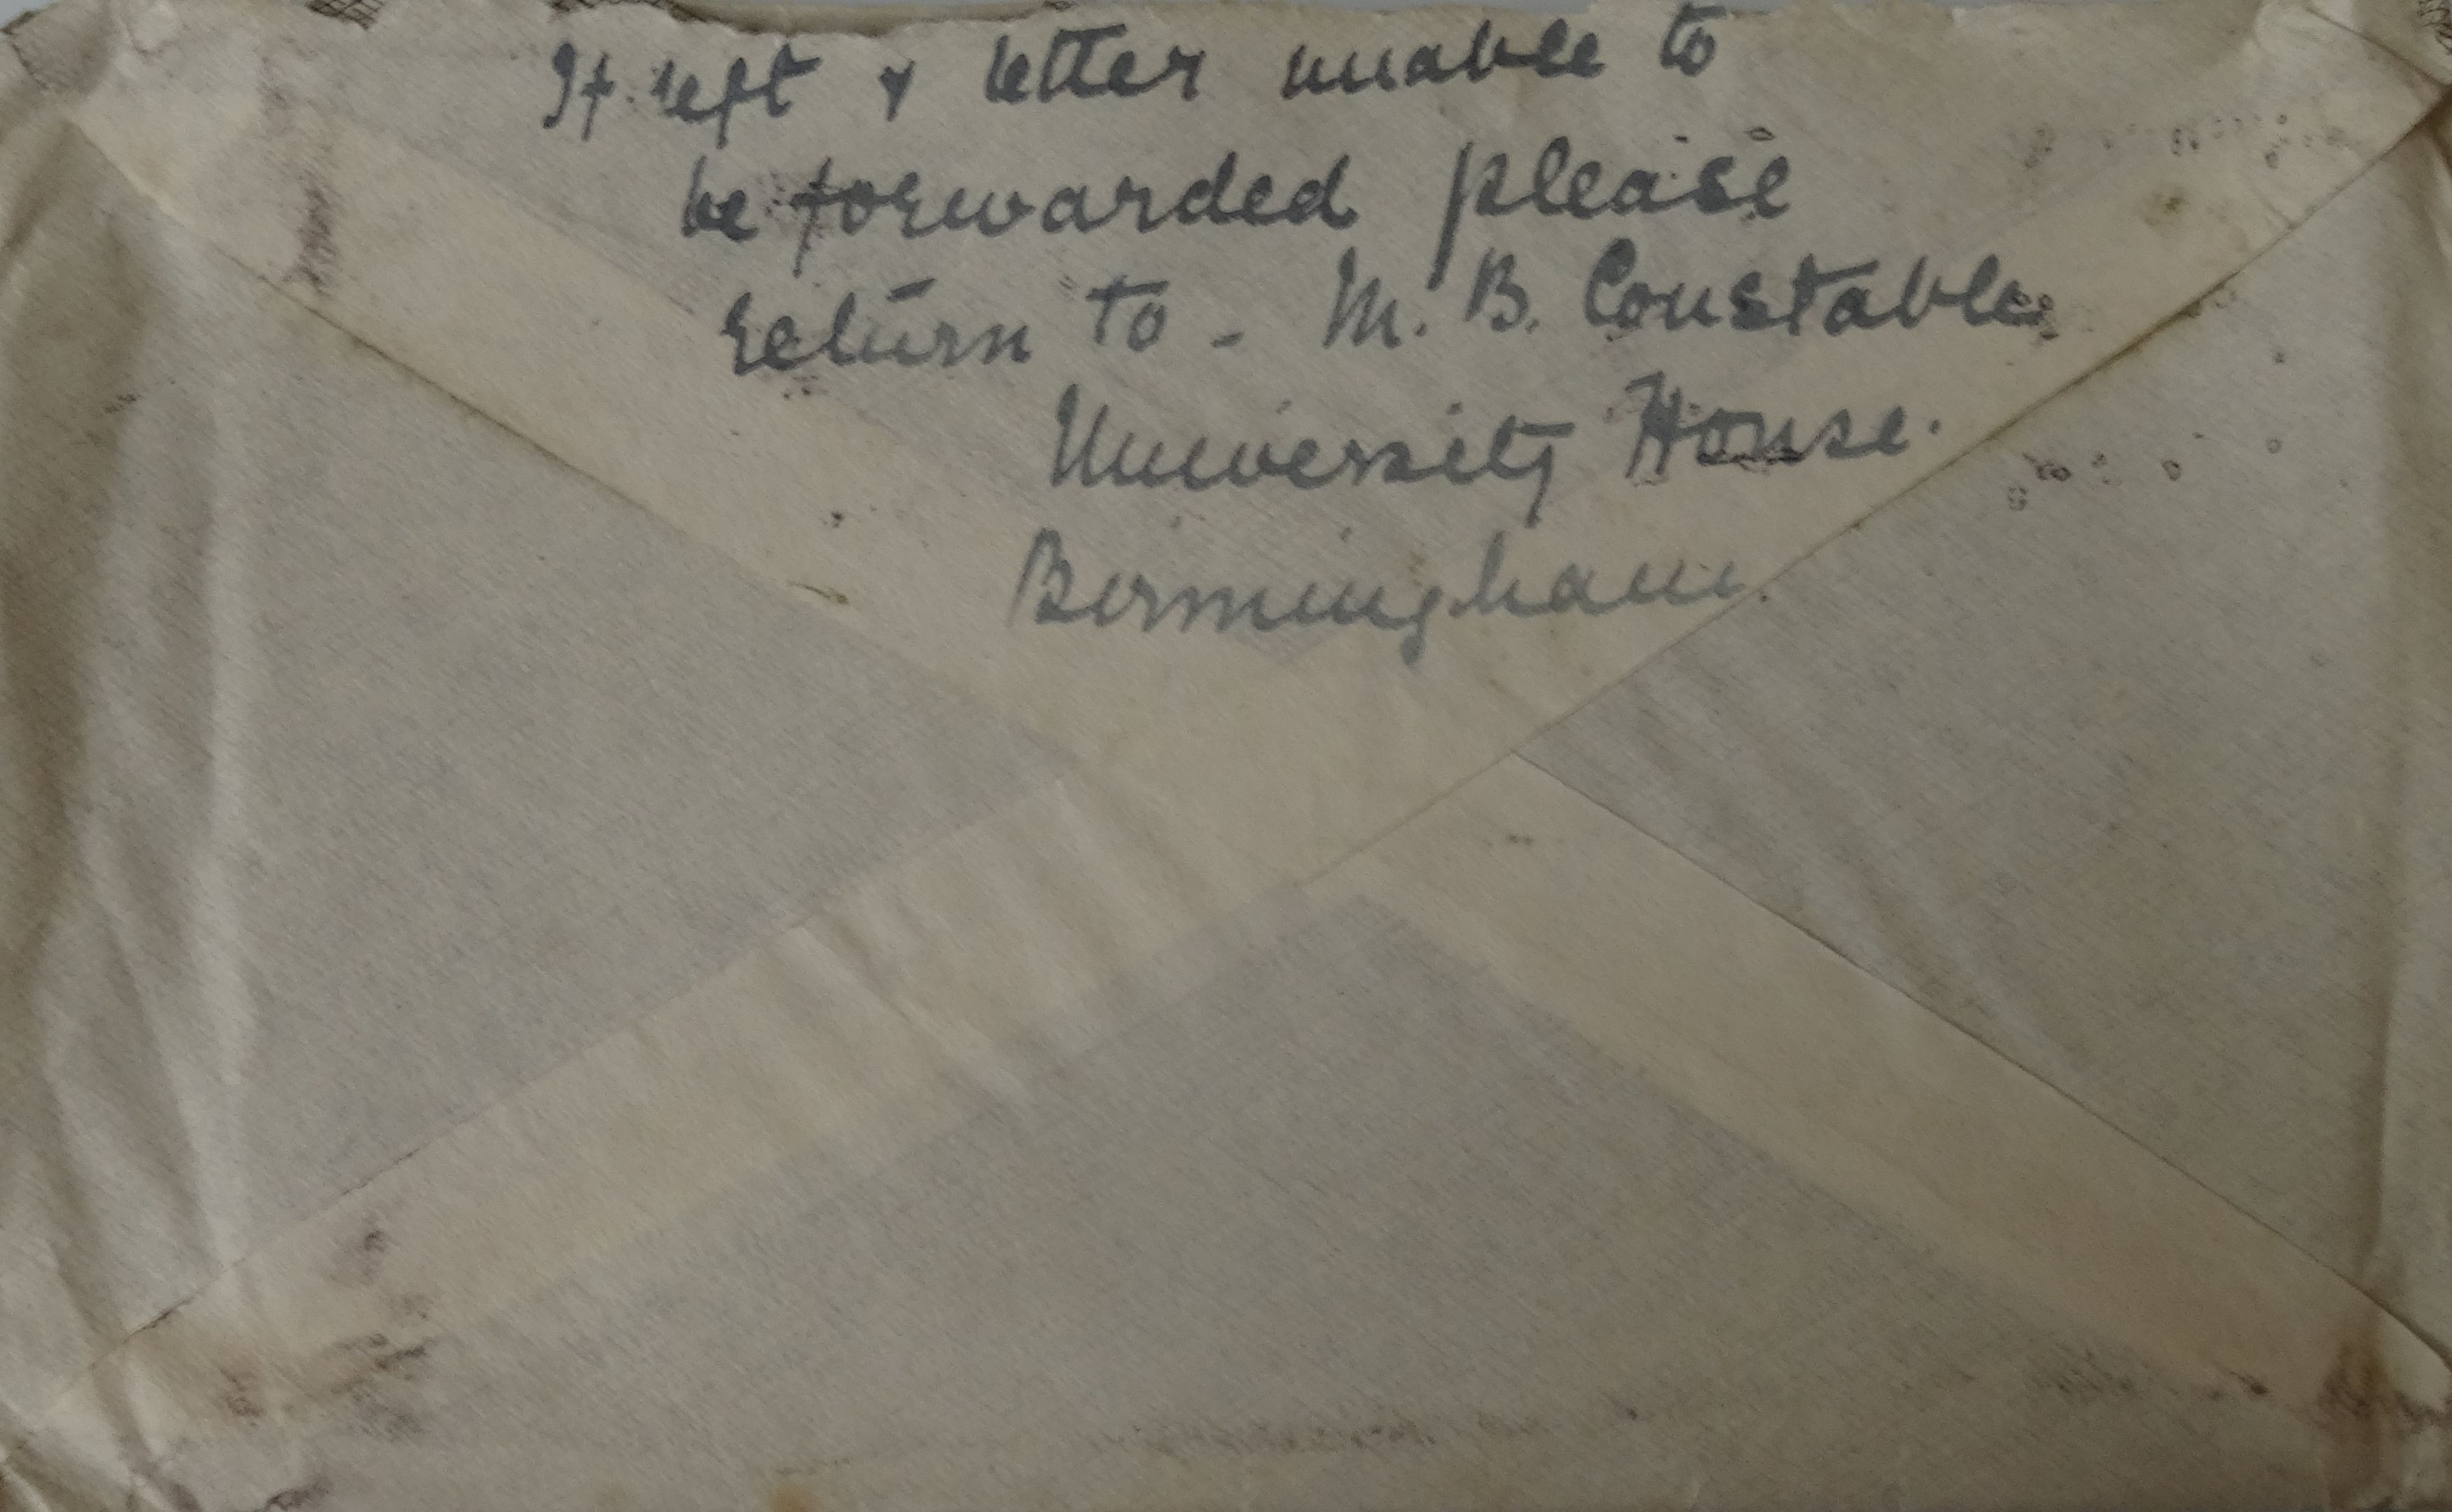 If left & letter unable to
be forwarded please
return to - M. B. Constable
University House.
Birmingham.